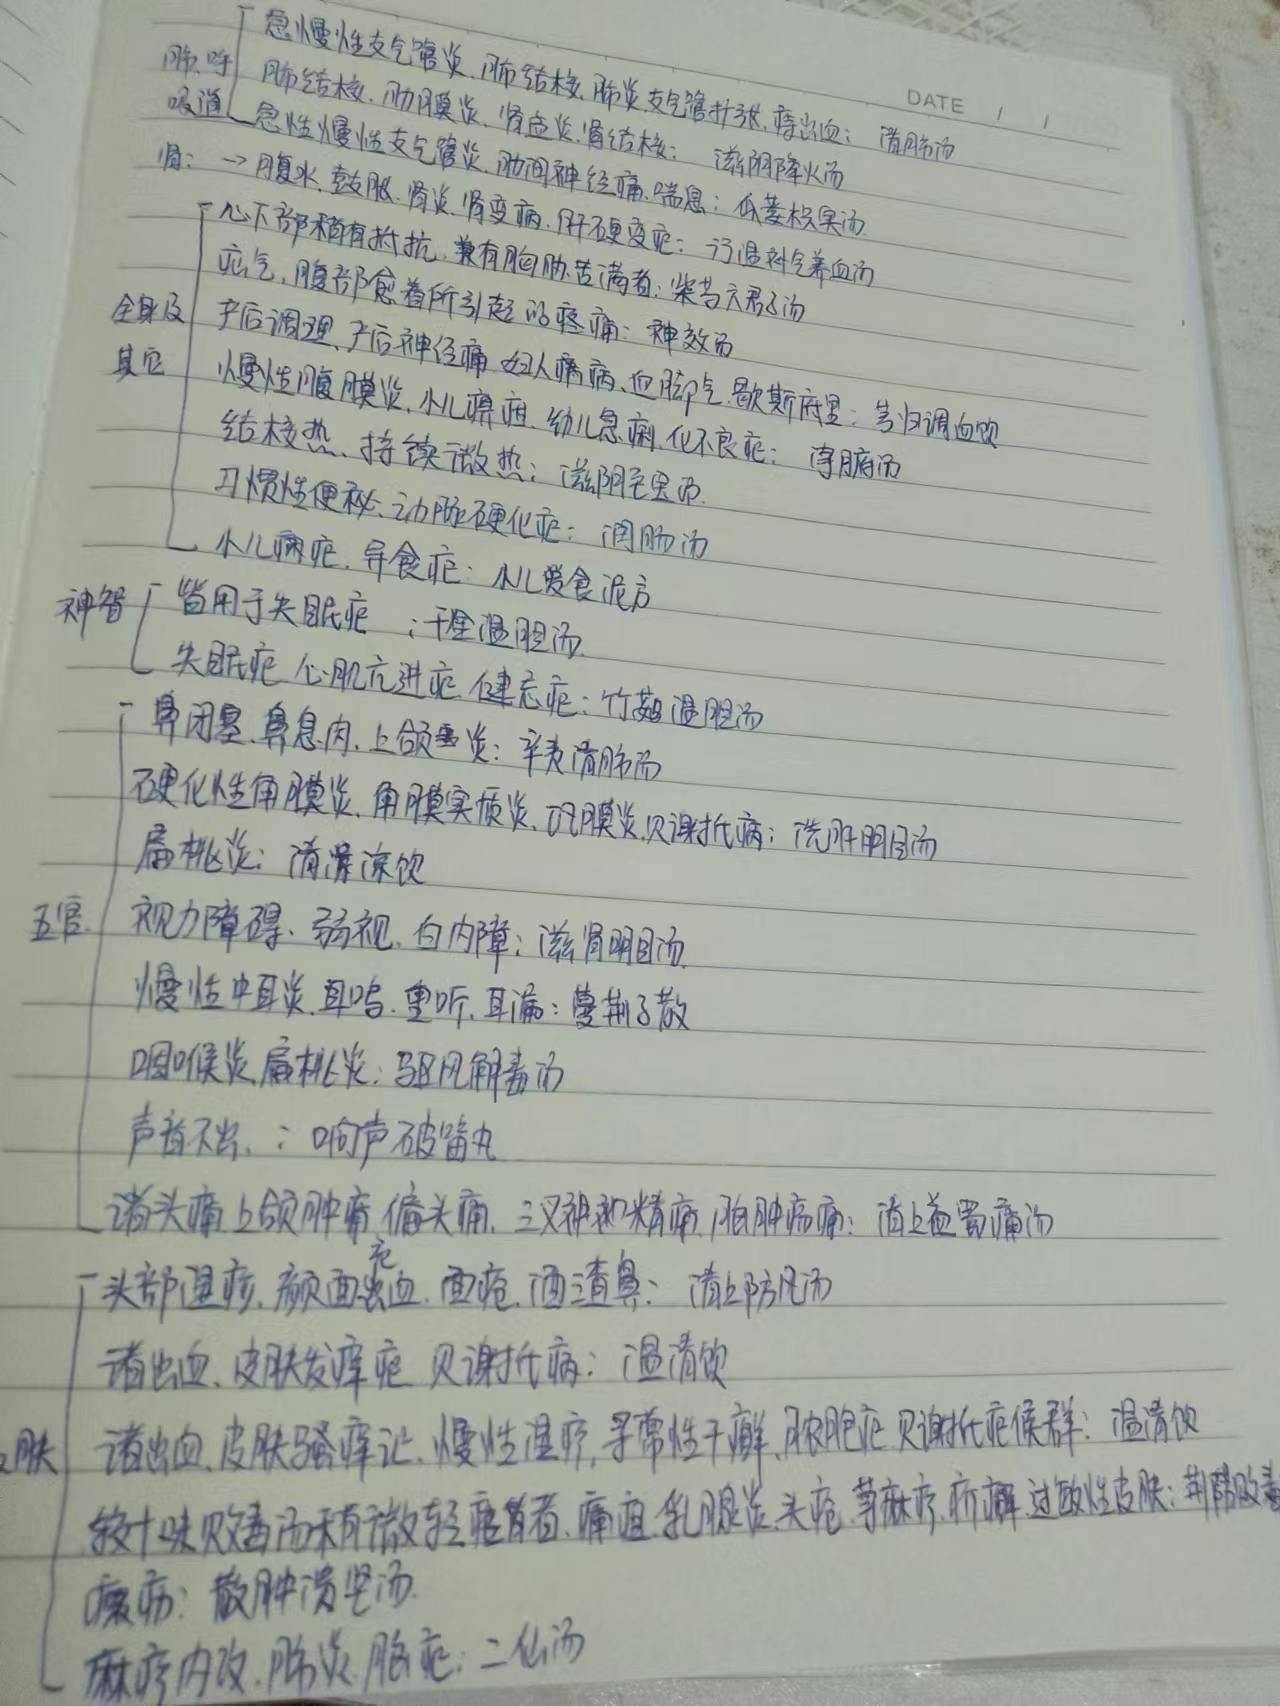 DATE / /
急慢性支气管炎、肺结核、肺炎、支气管扩张、痔出血：清肺汤
肺、呼吸道
肺结核、肋膜炎、肾盂炎、肾结核：滋阴降火汤
急性慢性支气管炎、肋间神经痛、喘息：瓜蒌枳实汤
肾：→腹水、鼓胀、肾炎、肾变病、肝硬变症：补气养血汤
心下部稍有抵抗、兼有胸胁苦满者：柴芍六君子汤
疝气、腹部愈着所引起的疼痛：神效汤
全身及其它
产后调理、产后神经痛、妇人病、血脚气、歇斯底里：芎归调血饮
慢性腹膜炎、小儿、幼儿急痢、化不良症：汤
结核热、持续微热：滋阴至宝汤
习惯性便秘、动脉硬化症：润肠汤
小儿病症、异食症：小儿爱食泥方
神智
皆用于失眠症：千金温胆汤
失眠症 心肌亢进症 健忘症：竹茹温胆汤
鼻闭塞、鼻息肉、上颌炎：辛夷清肺汤
硬化性角膜炎、角膜实质炎、巩膜炎、贝谢托病：洗肝明目汤
扁桃炎：清凉饮
五官
视力障碍、弱视、白内障：滋肾明目汤
慢性中耳炎、耳鸣、重听、耳漏：蔓荆子散
咽喉炎、扁桃炎：驱风解毒汤
声音不出、：响声破笛丸
诸头痛、上颌肿痛、偏头痛、三叉神精痛、肿疡痛：清上蠲痛汤
头部湿疹、颜面充血、面疱、酒渣鼻：清上防风汤
诸出血、皮肤发痒症 贝谢托病：温清饮
肤
诸出血、皮肤骚痒证、慢性湿疹，寻常性干癣、脓胞症 贝谢托症候群：温清饮
较十味败毒汤稍有微轻症者、痈疽、乳腺炎、头疮、荨麻疹、疥癣、过敏性皮肤：荆防败毒
瘰疬：散肿溃坚汤
麻疹内攻、肺炎、脑症：二仙汤